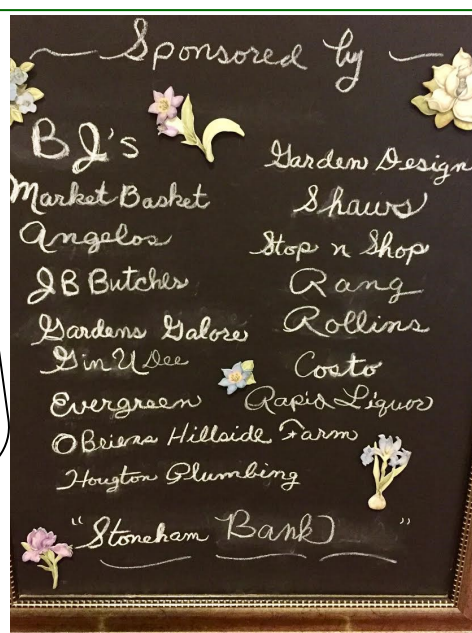 Sponsored by
BJ's
Market Basket
Angelos
JB Butches
Gardens Galore
Gin U Dee
Evergreen
O Briens Hillside Farm
Hougton Plumbing
Garden Design
Shaws
Stop n Shop
Rang
Rollins
Costo
Rapid Liquor
"Stoneham Bank"